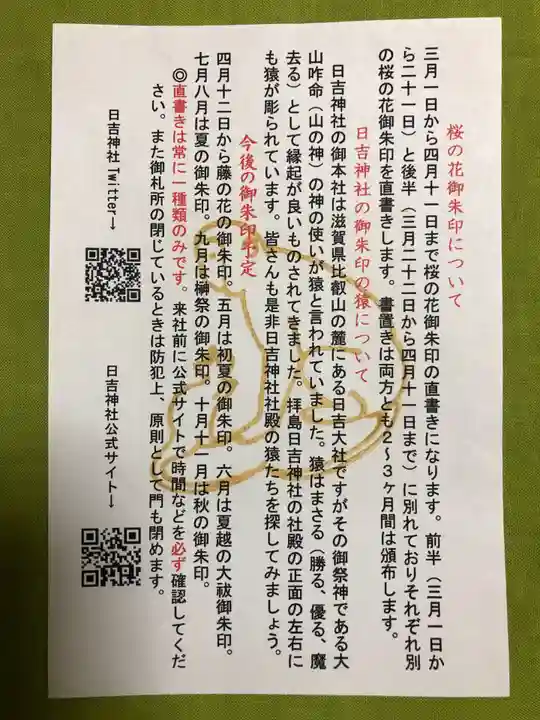 桜の花御朱印について
三月一日から四月十一日まで桜の花御朱印の直書きになります。前半（三月一日か
ら二十一日）と後半（三月二十二日から四月十一日まで）に別れておりそれぞれ別
の桜の花御朱印を直書きします。書置きは両方とも２～３ヶ月間は頒布します。
日吉神社の御朱印の猿について
日吉神社の御本社は滋賀県比叡山の麓にある日吉大社ですがその御祭神である大
山咋命（山の神）の神の使いが猿と言われていました。猿はまさる（勝る、優る、魔
去る）として縁起が良いものされてきました。拝島日吉神社の社殿の正面の左右に
も猿が彫られています。皆さんも是非日吉神社社殿の猿たちを探してみましょう。
今後の御朱印予定
四月十二日から藤の花の御朱印。五月は初夏の御朱印。六月は夏越の大祓御朱印。
七月八月は夏の御朱印。九月は榊祭の御朱印。十月十一月は秋の御朱印。
◎直書きは常に一種類のみです。来社前に公式サイトで時間などを必ず確認してくだ
さい。また御札所の閉じているときは防犯上、原則として門も閉めます。
日吉神社 Twitter→
日吉神社公式サイト→